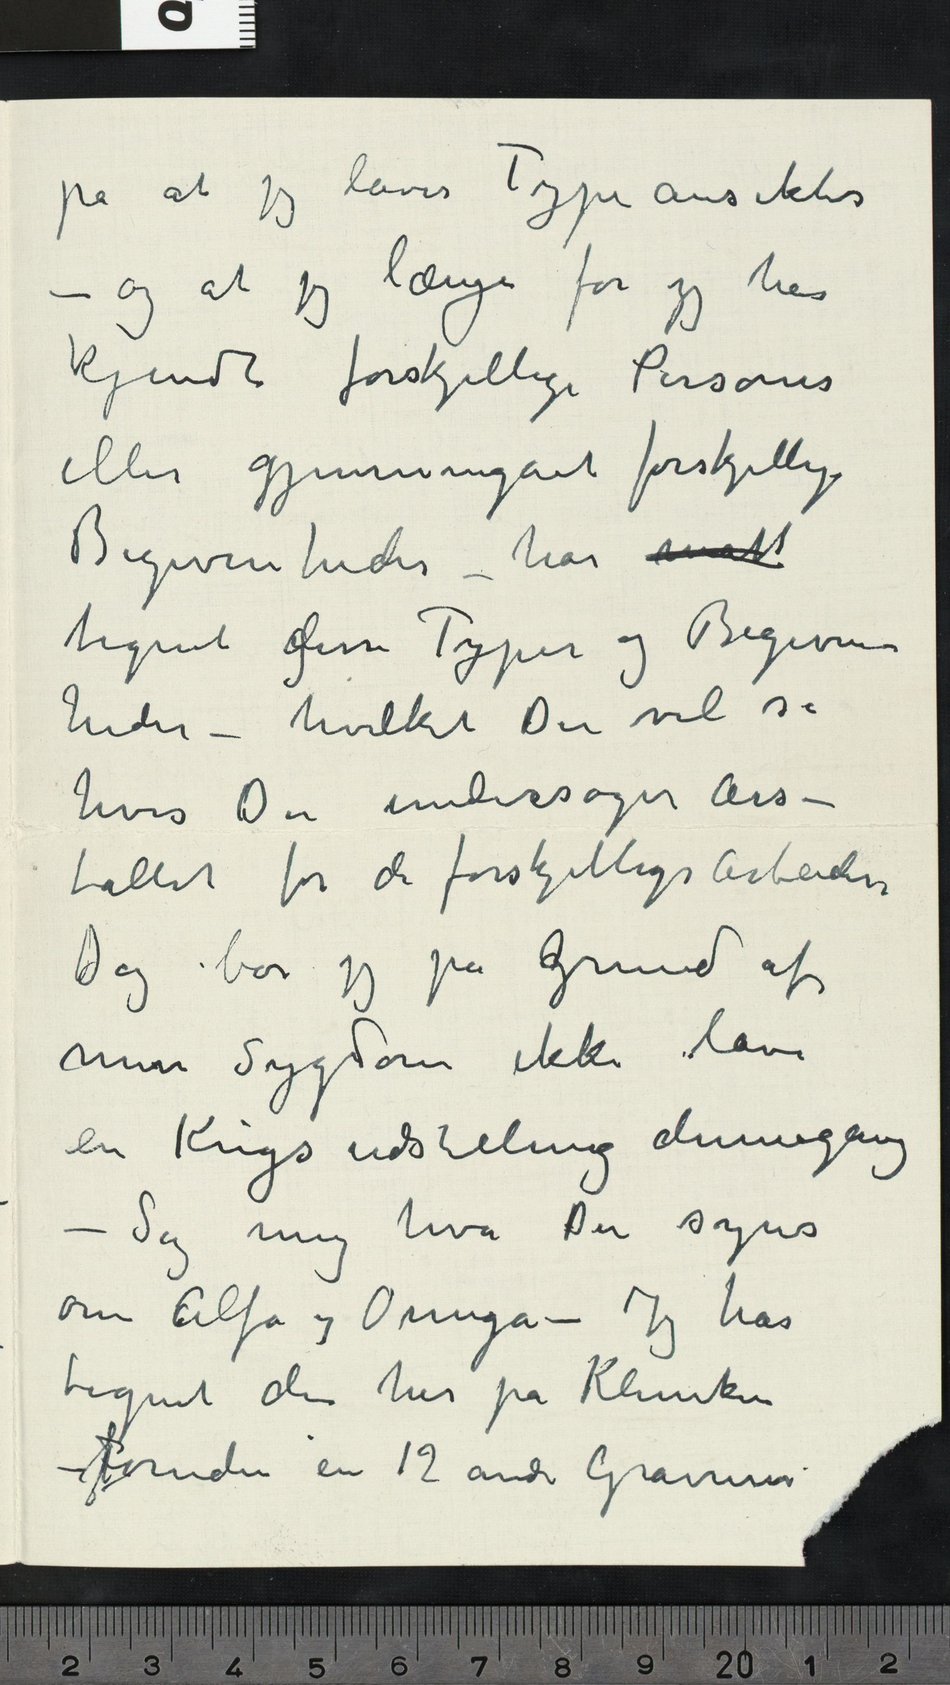 på at jeg laver Typeansikter
– og at jeg længe før jeg har
kjendt forskjellige Personer
eller gjennemgået forskjellige
Begivenheder – har malt
tegnet disse Typer og Begiven
heder – hvilket De vil se
hvis De undersøger års–
tallet for de forskjellige Arbeider
Dog bør jeg på Grund af
min Sygdom ikke lave
en Krigsudstelling dennegang
– Sig mig hva De synes
om Alfa og Omega – Jeg har
tegnet den her på Kliniken
– foruden en 12 andre Gravurer
2 3 4 5 6 7 8 9 20 1 2